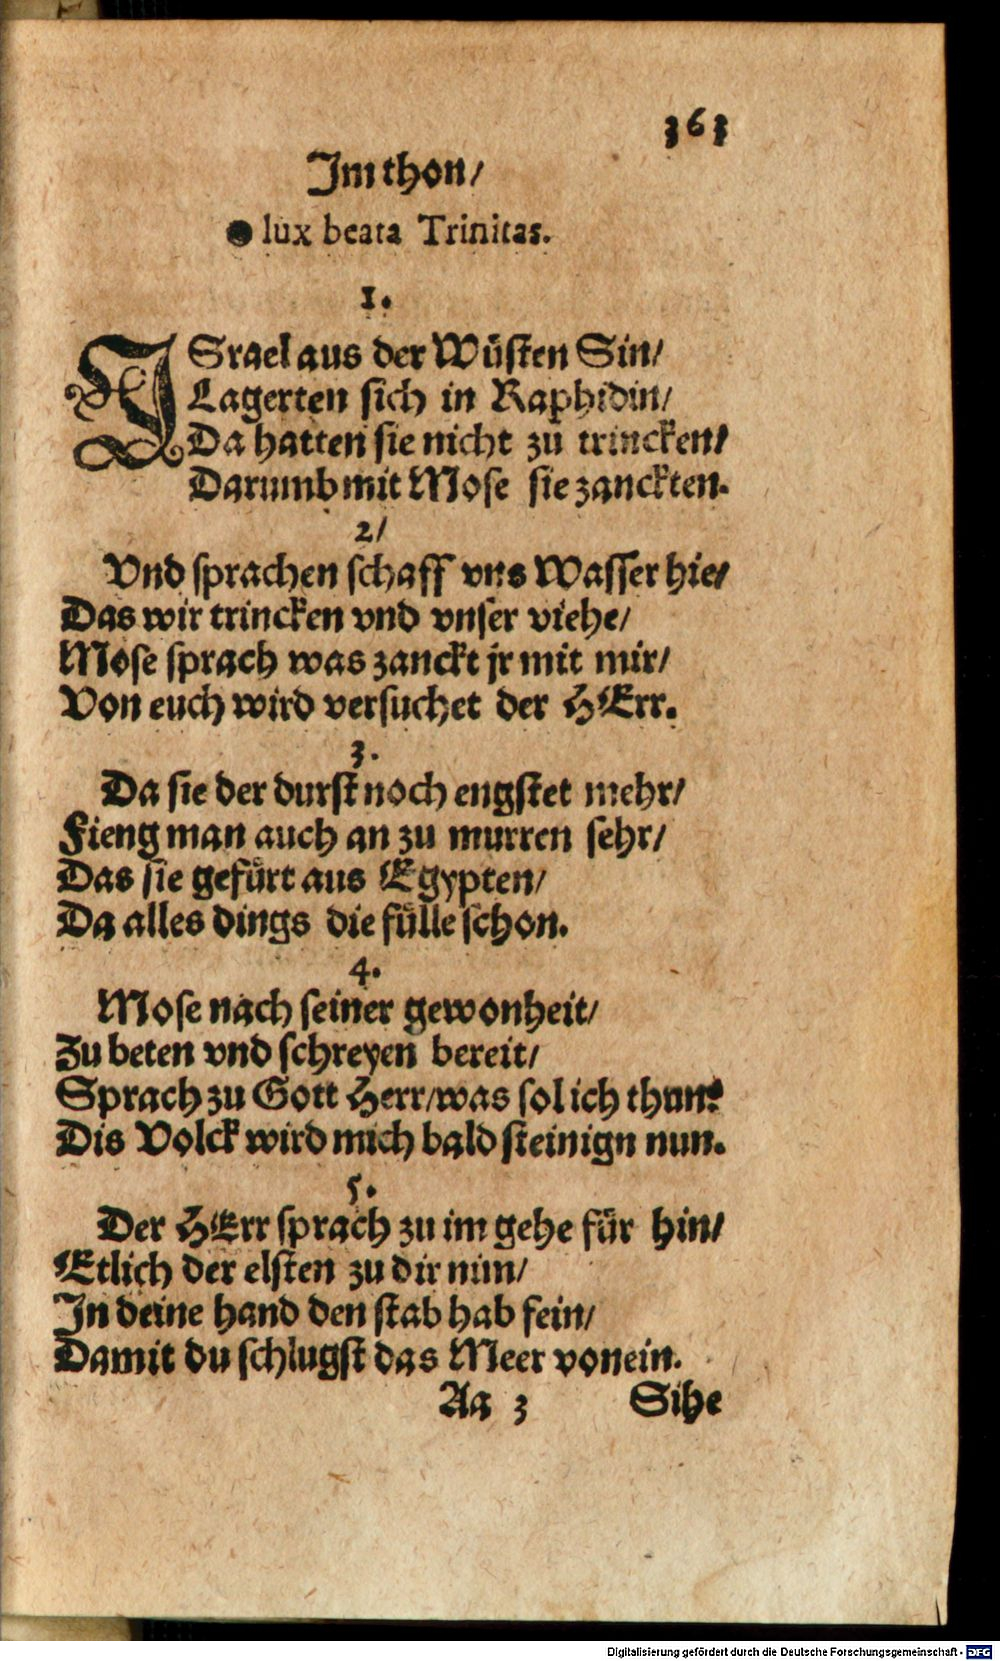 363
Im thon/
O lux beata Trinitas.
1.
ISrael aus der Wüsten Sin/
Lagerten sich in Raphidin/
Da hatten sie nicht zu trincken/
Darumb mit Mose sie zanckten.
2/
Vnd sprachen schaff vns Wasser hie/
Das wir trincken vnd vnser viehe/
Mose sprach was zanckt jr mit mir/
Von euch wird versuchet der HErr.
3.
Da sie der durst noch engstet mehr/
Fieng man auch an zu murren sehr/
Das sie gefürt aus Egypten/
Da alles dings die fülle schon.
4.
Mose nach seiner gewonheit/
Zu beten vnd schreyen bereit/
Sprach zu Gott Herr/was sol ich thun?
Dis Volck wird mich bald steinign nun.
5.
Der HErr sprach zu im gehe für hin/
Etlich der elsten zu dir nim/
In deine hand den stab hab fein/
Damit du schlugst das Meer vonein.
Aa 3 Sihe
Digitalisierung gefördert durch die Deutsche Forschungsgemeinschaft - DFG